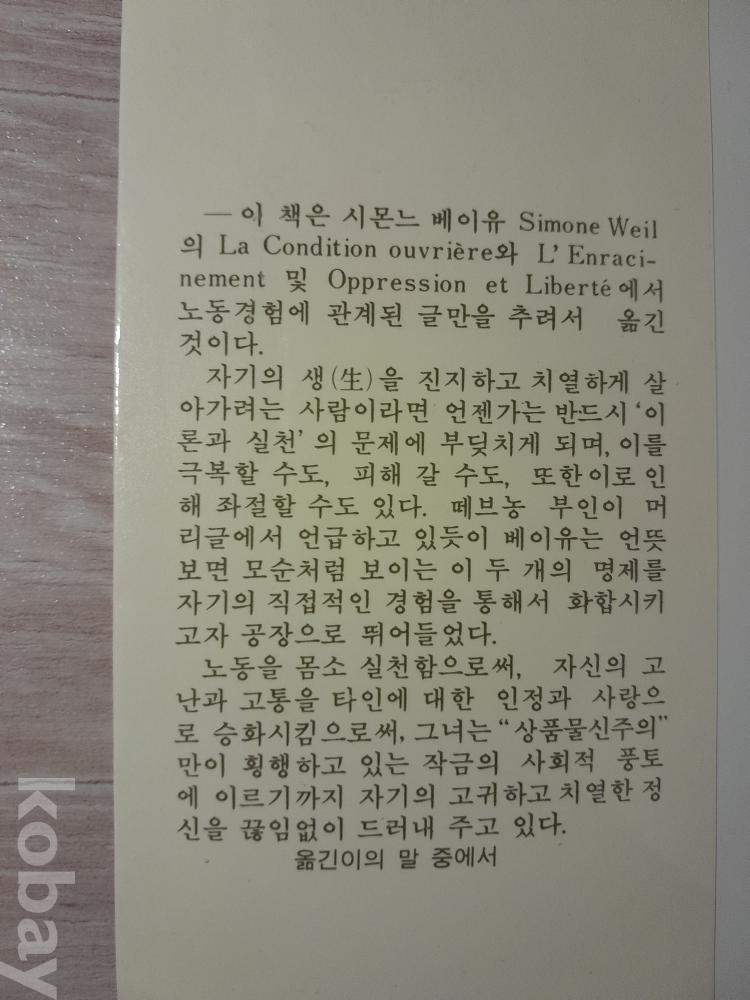 — 이 책은 시몬느 베이유 Simone Weil
의 La Condition ouvrière와 L' Enraci-
nement 및 Oppression et Liberté에서
노동경험에 관계된 글만을 추려서 옮긴
것이다.
자기의 생(生)을 진지하고 치열하게 살
아가려는 사람이라면 언젠가는 반드시 '이
론과 실천' 의 문제에 부딪치게 되며, 이를
극복할 수도, 피해 갈 수도, 또한 이로 인
해 좌절할 수도 있다. 떼브농 부인이 머
리글에서 언급하고 있듯이 베이유는 언뜻
보면 모순처럼 보이는 이 두 개의 명제를
자기의 직접적인 경험을 통해서 화합시키
고자 공장으로 뛰어들었다.
노동을 몸소 실천함으로써, 자신의 고
난과 고통을 타인에 대한 인정과 사랑으
로 승화시킴으로써, 그녀는 "상품물신주의"
만이 횡행하고 있는 작금의 사회적 풍토
에 이르기까지 자기의 고귀하고 치열한 정
신을 끊임없이 드러내 주고 있다.
옮긴이의 말 중에서
kobay